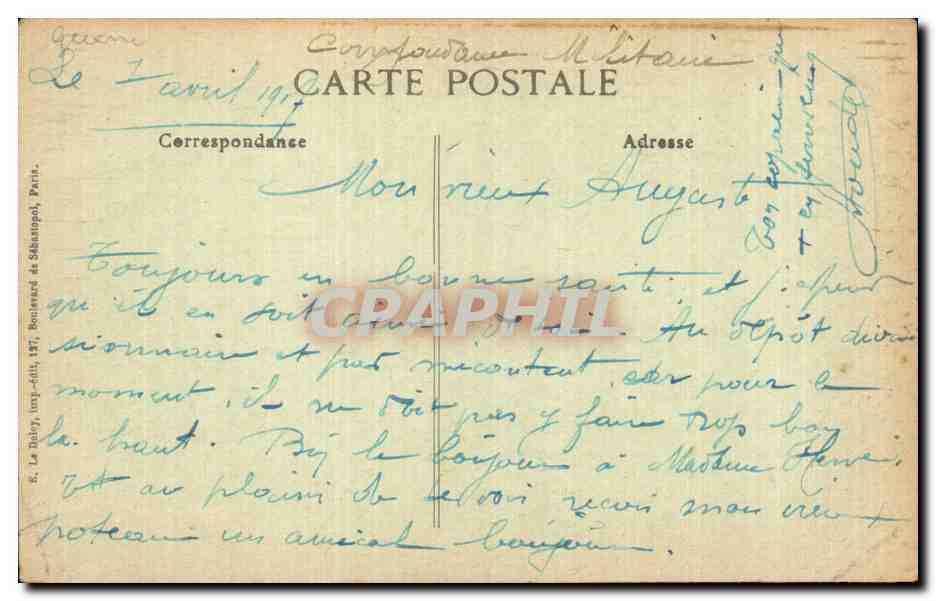 guerre
Correspondance Militaire
Le 7 avril 1917
CARTE POSTALE
Correspondance
Adresse
Mon vieux Auguste
Toujours en bonne santé, et j'espère
qu'il en soit ainsi de toi. Au dépôt divi
sionnaire et pas mécontent car pour le
moment, il ne doit pas y faire trop bon
la haut. Bj le bonjour à Madame
au plaisir de te voir reçois mon vieux
poteau un amical bonjour.
Ton copain qui
E. Le Deley, imp.-édit, 127, Boulevard de Sébastopol, Paris.
CRAPHIL